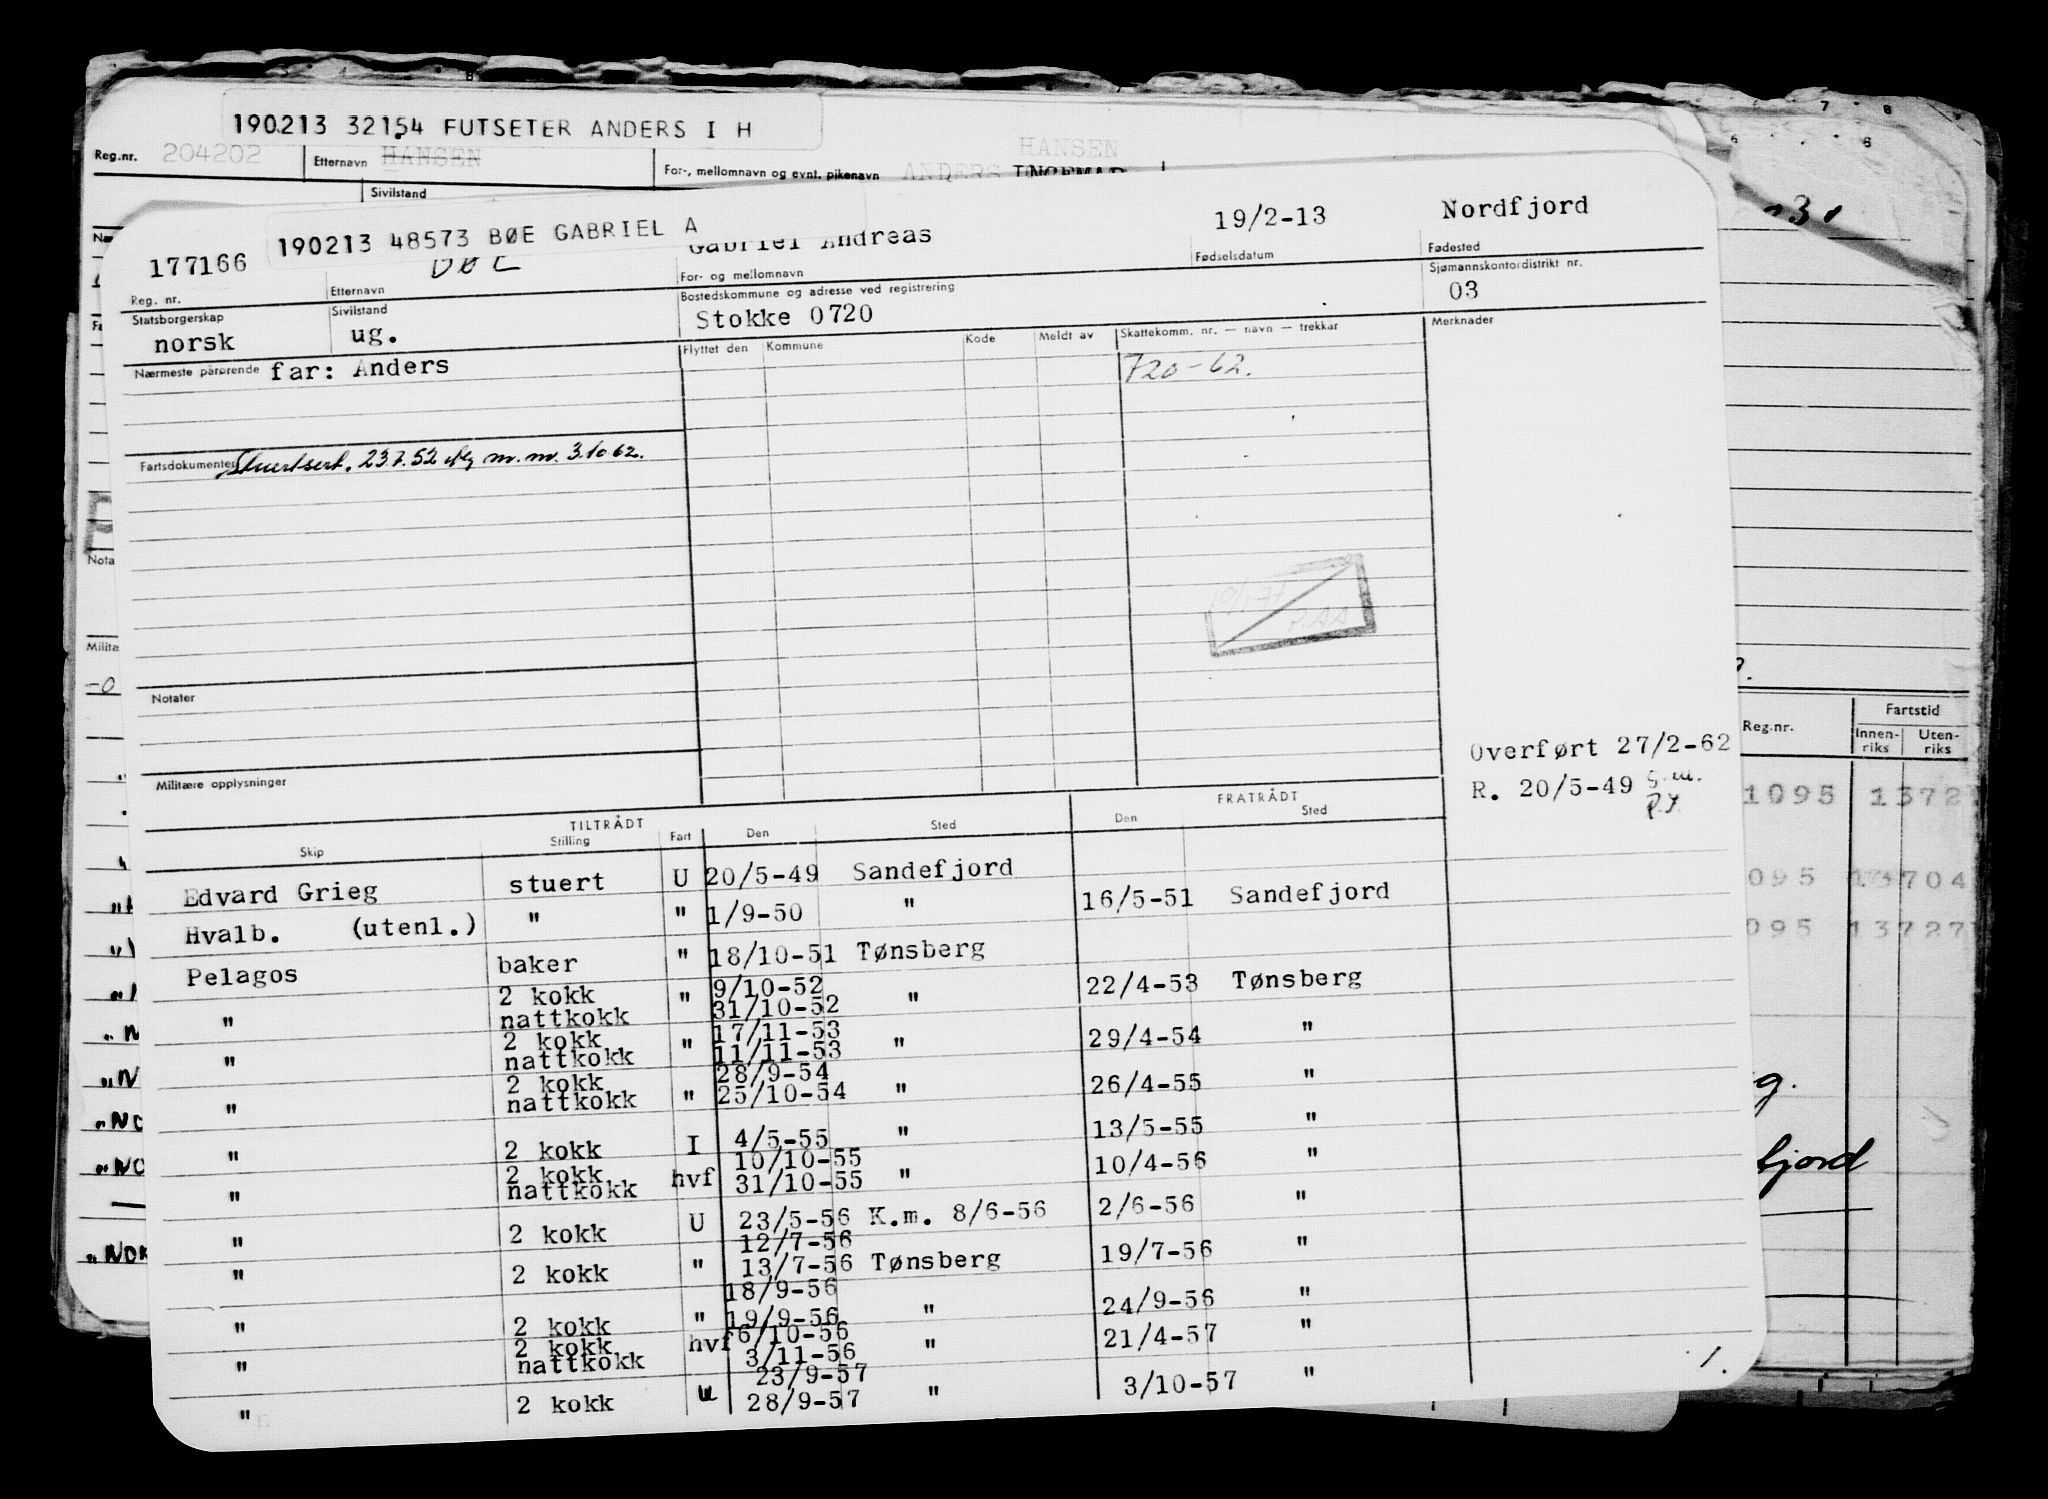 190213 32154 FUTSETER ANDERS I H
Reg.nr. 204202 Etternavn HANSEN For-, mellomnavn og evnt. pikenavn HANSEN ANDERS INGEMAR
Sivilstand
190213 48573 BØE GABRIEL A
177166 BØE Gabriel Andreas 19/2-13 Nordfjord
Reg. nr. Etternavn For- og mellomnavn Fødselsdatum Fødested
Statsborgerskap Sivilstand Bostedskommune og adresse ved registrering Sjømannskontordistrikt nr.
norsk ug. Stokke 0720 03
Nærmeste pårørende far: Anders Flyttet den Kommune Kode Meldt av Skattekomm. nr. — navn — trekkår Merknader
720-62.
Fartsdokumenter Stuertsert. 23.7.52 m.m. 3.10 62.
P.AA
Notater
Militære opplysninger
Overført 27/2-62
R. 20/5-49 g.m.
P.J.
TILTRÅDT FRATRÅDT
Skip Stilling Fart Den Sted Den Sted
Edvard Grieg stuert U 20/5-49 Sandefjord
Hvalb. (utenl.) " " 1/9-50 " 16/5-51 Sandefjord
Pelagos baker " 18/10-51 Tønsberg
2 kokk 9/10-52
" nattkokk " 31/10-52 " 22/4-53 Tønsberg
2 kokk 17/11-53
" nattkokk " 11/11-53 " 29/4-54 "
2 kokk 28/9-54
" nattkokk " 25/10-54 " 26/4-55 "
" 2 kokk I 4/5-55 " 13/5-55 "
2 kokk 10/10-55
" nattkokk hvf 31/10-55 " 10/4-56 "
" 2 kokk U 23/5-56 K.m. 8/6-56 2/6-56 "
12/7-56
" 2 kokk " 13/7-56 Tønsberg 19/7-56 "
18/9-56
" 2 kokk " 19/9-56 " 24/9-56 "
2 kokk 6/10-56
" nattkokk hvf 3/11-56 " 21/4-57 "
23/9-57
" 2 kokk U 28/9-57 " 3/10-57 "
1.
Reg.nr. Fartstid
Innen-riks Uten-riks
1095 1372
095 13704
095 13727
g.
fjord
Nota
Milita